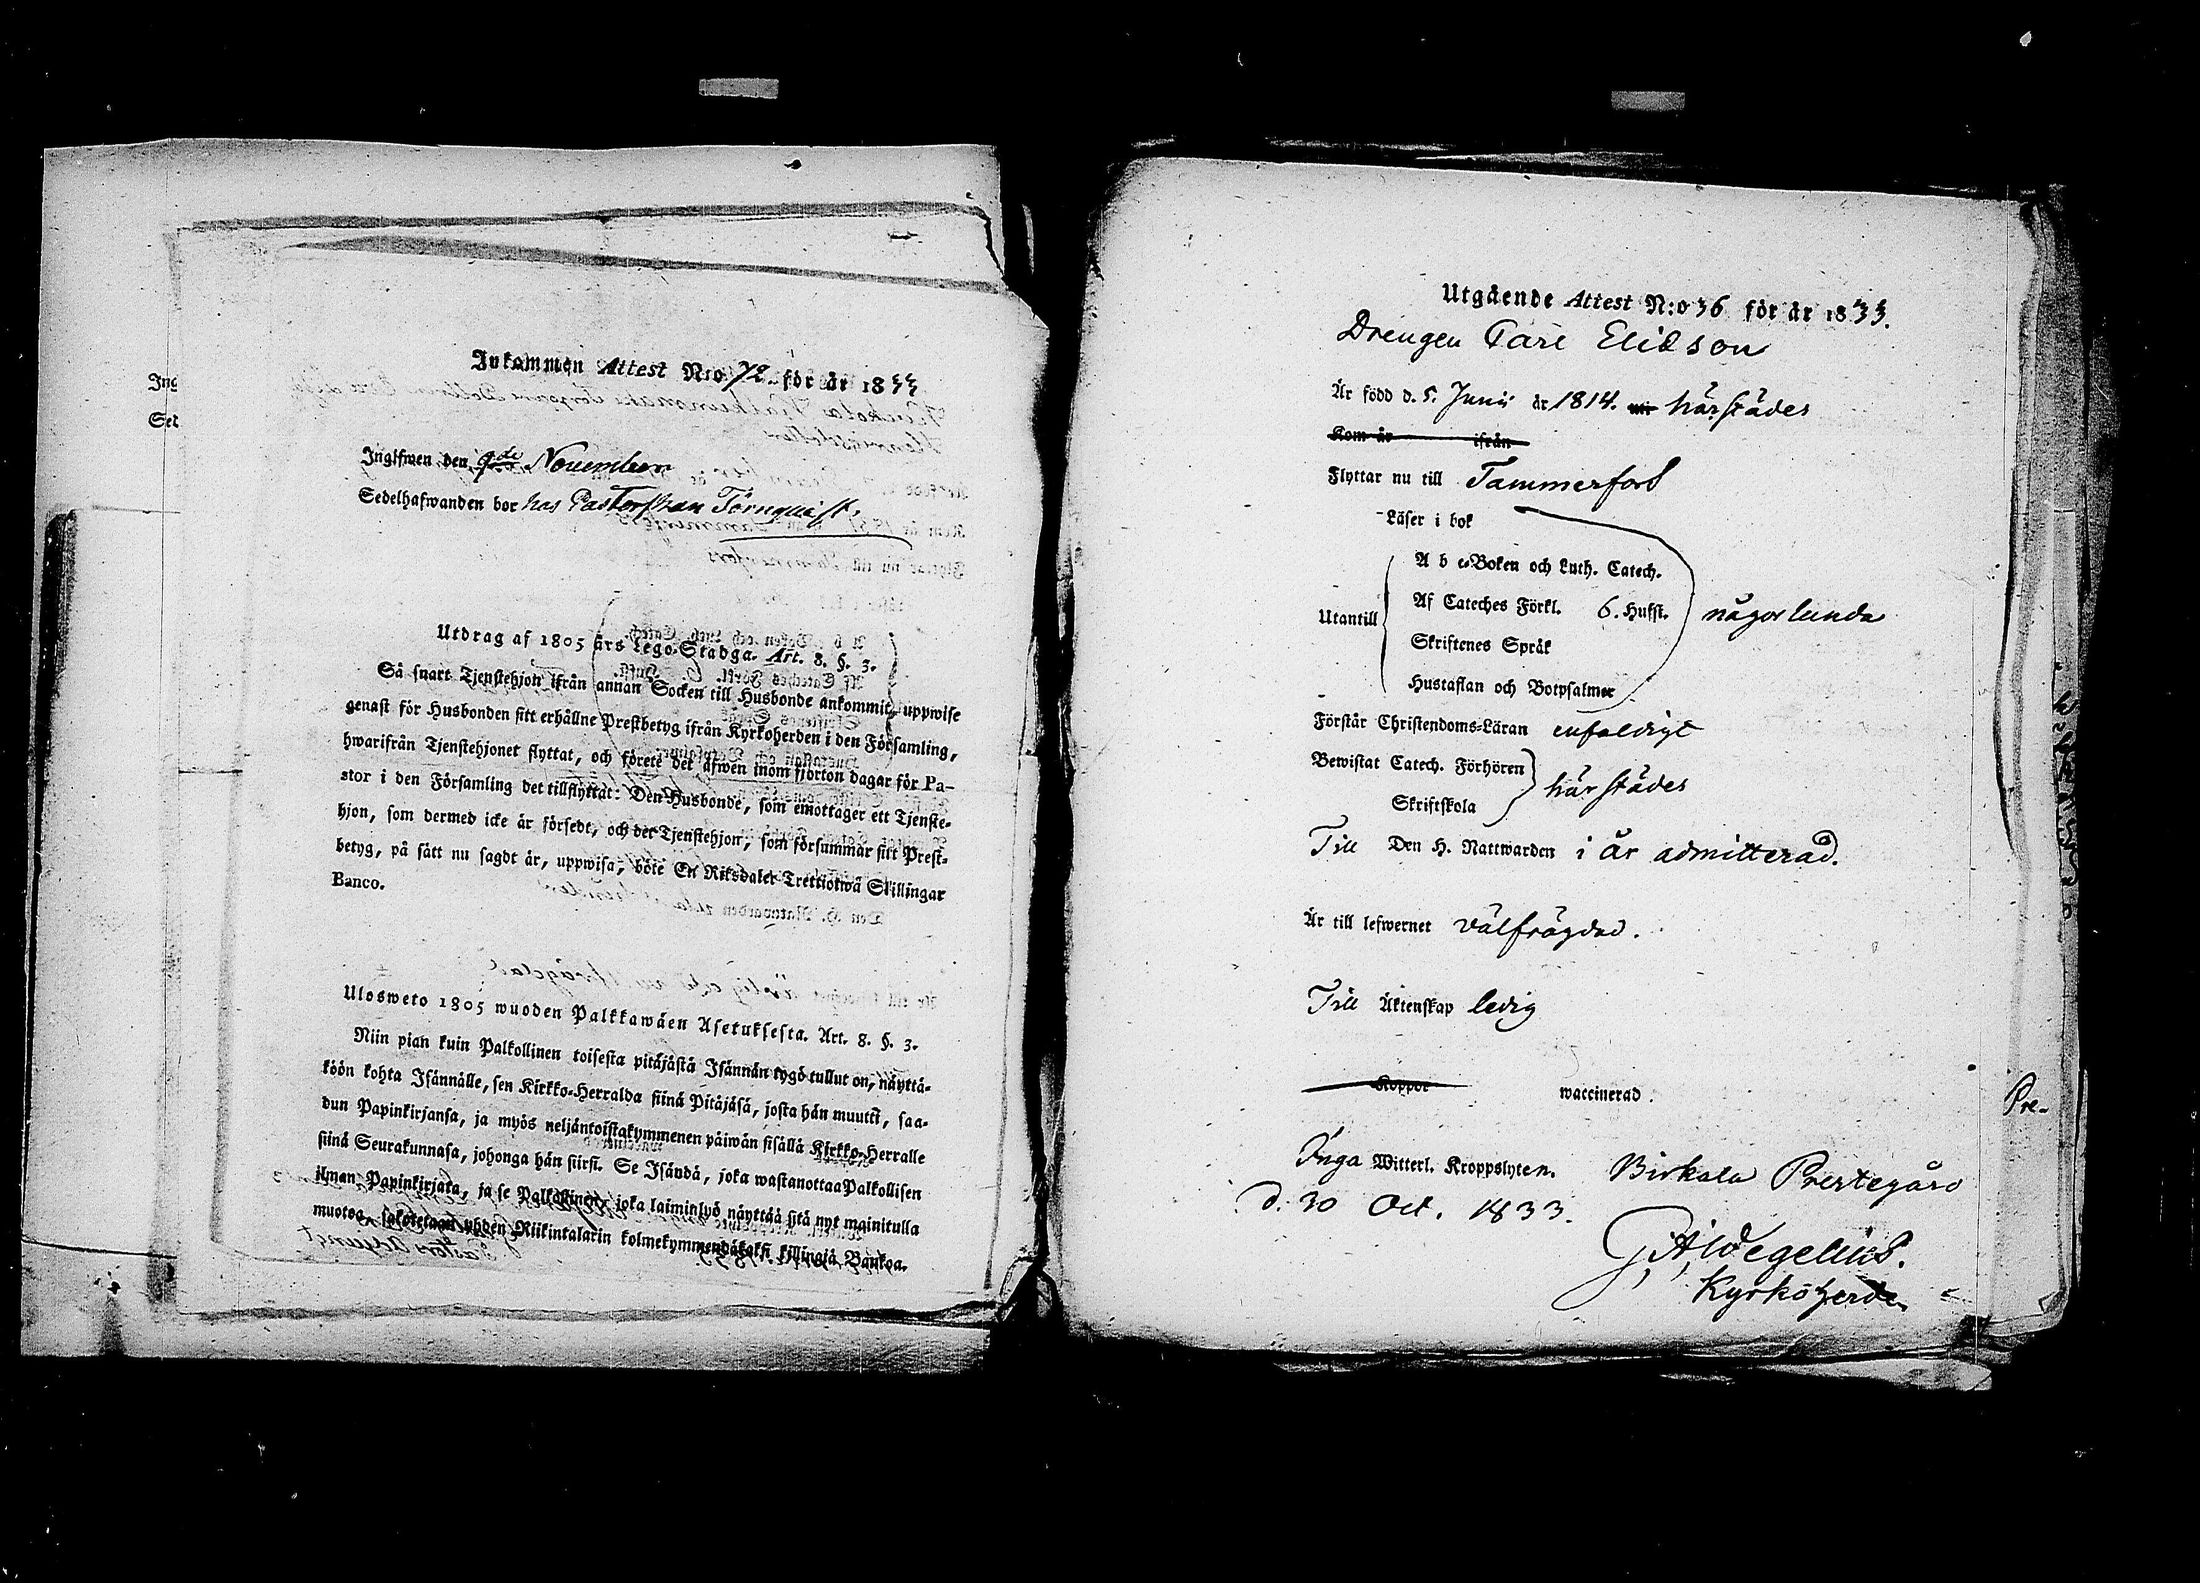 Inkommen Attest N:o 72 för år 1833
Inglfwen den 9de November
Sedelhafwanden bor hos Pastorskan Törnquist.
Utdrag af 1805 års Lego-Stadga. Art. 8. §. 3.
Så snart Tjenstehjon ifrån annan Socken till Husbonde ankommit, uppwise
genast för Husbonden sitt erhållne Prestbetyg ifrån Kyrkoherden i den Församling,
hwarifrån Tjenstehjonet flyttat, och förete det äfwen inom fjorton dagar för Pa-
stor i den Församling det tillflyttat: Den Husbonde, som emottager ett Tjenste-
hjon, som dermed icke är försedt, och det Tjenstehjon, som försummar sitt Prest-
betyg, på sätt nu sagdt är, uppwisa, böte En Riksdaler Trettiotwå Skillingar
Banco.
Ulosweto 1805 wuoden Palkkawäen Asetuksesta. Art. 8. §. 3.
Niin pian kuin Palkollinen toisesta pitäjästä Isännän tygö tullut on, näyttä-
köön kohta Isännälle, sen Kirkko-Herralda siinä Pitäjäsä, josta hän muutti, saa-
dun Papinkirjansa, ja myös neljäntoistakymmenen päiwän sisällä Kirkko-Herralle
siinä Seurakunnasa, johonga hän siirsi. Se Isändä, joka wastanottaa Palkollisen
ilman Papinkirjata, ja se Palkollinen, joka laiminlyö näyttää sitä nyt mainitulla
muotoa, sakotetaan yhden Riikintalarin kolmekymmendäkaksi killingiä Bankoa.
Ing
Sed
Utgående Attest N:o 36 för år 1833.
Drengen Carl Elidson
Är född d. 5. Junii år 1814. härstädes
Kom år ifrån
Flyttar nu till Tammerfors
Läser i bok
A b c-Boken och Luth. Catech.
Af Cateches Förkl. 6. Hufst.
Utantill någorlunda
Skriftenes Språk
Hustaflan och Botpsalmer
Förstår Christendoms-Läran enfaldigt
Bewistat Catech. Förhören
härstädes
Skriftskola
Till Den H. Nattwarden i år admitterad.
Är till lefwernet välfrägdad.
Till Äktenskap ledig
Koppor waccinerad.
Inga Witterl. Kroppslyten. Birkala Prestegård
d. 30 Oct. 1833.
G. A. Wegelius.
Kyrkoherde
Pre-